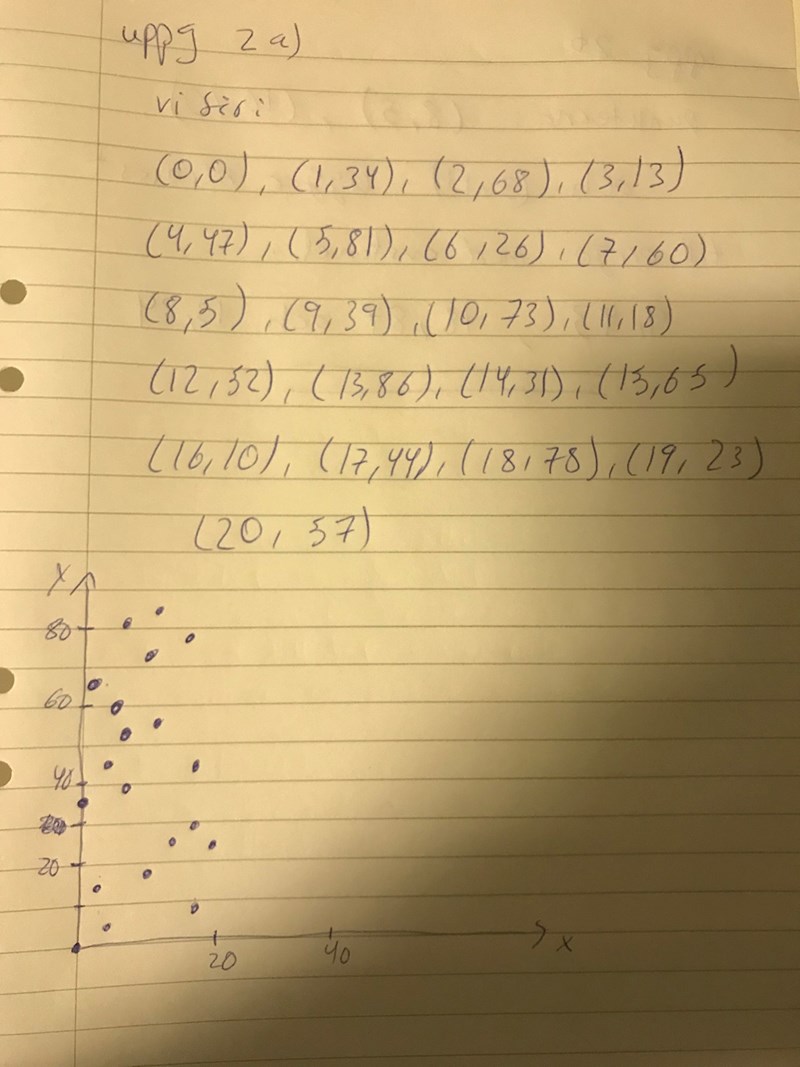 uppg 2a)
vi ser:
(0,0), (1,34), (2,68), (3,13)
(4,47), (5,81), (6,26), (7,60)
(8,5), (9,39), (10,73), (11,18)
(12,52), (13,86), (14,31), (15,65)
(16,10), (17,44), (18,78), (19,23)
(20,57)
y
80
60
40
20
20 40 x